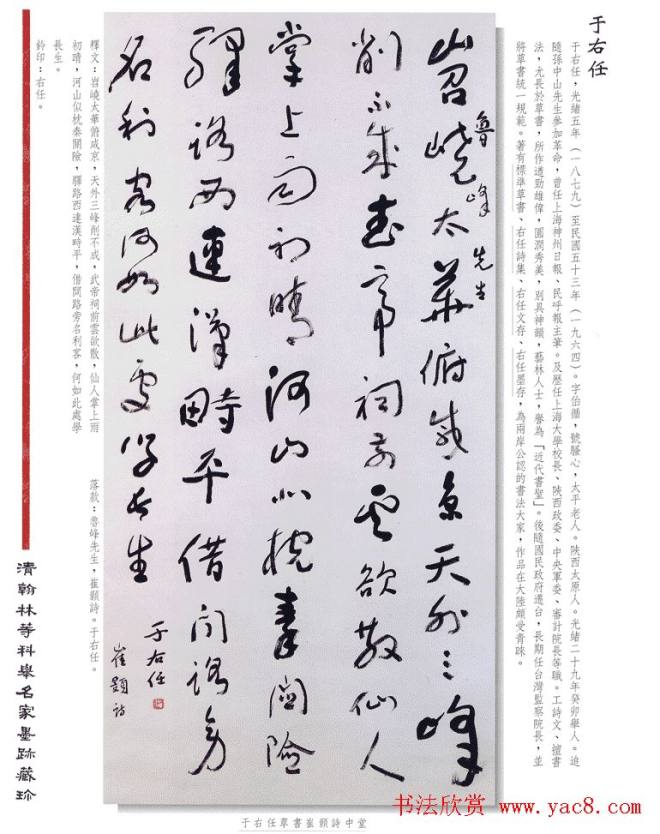 于右任
于右任，光緒五年（一八七九）至民國五十三年（一九六四）。字伯循，號騷心，太平老人。陝西太原人。光緒二十九年癸卯舉人。追
隨孫中山先生參加革命，曾任上海神州日報、民呼報主筆。及歷任上海大學校長、陝西政委、中央軍委、審計院長等職。工詩文、擅書
法，尤長於草書，所作遒勁雄偉，圓潤秀美，別具神韻，藝林人士，譽為「近代書聖」。後隨國民政府遷台，長期任台灣監察院長，並
將草書統一規範。著有標準草書、右任詩集、右任文存、右任墨存，為兩岸公認的書法大家，作品在大陸頗受青睞。
魯峰先生
岧嶢太華俯咸京天外三峰
削不成武帝祠前雲欲散仙人
掌上雨初晴河山北枕秦關險
驛路西連漢畤平借問路旁
名利客何如此處學長生
崔顥詩
于右任
釋文：岧嶢太華俯咸京，天外三峰削不成，武帝祠前雲欲散，仙人掌上雨
初晴，河山似枕秦關險，驛路西連漢時平，借問路旁名利客，何如此處學
長生。
落款：魯峰先生，崔顥詩。于右任。
鈐印：右任。
清翰林等科舉名家墨跡藏珍
于右任草書崔顥詩中堂
书法欣赏 www.yac8.com